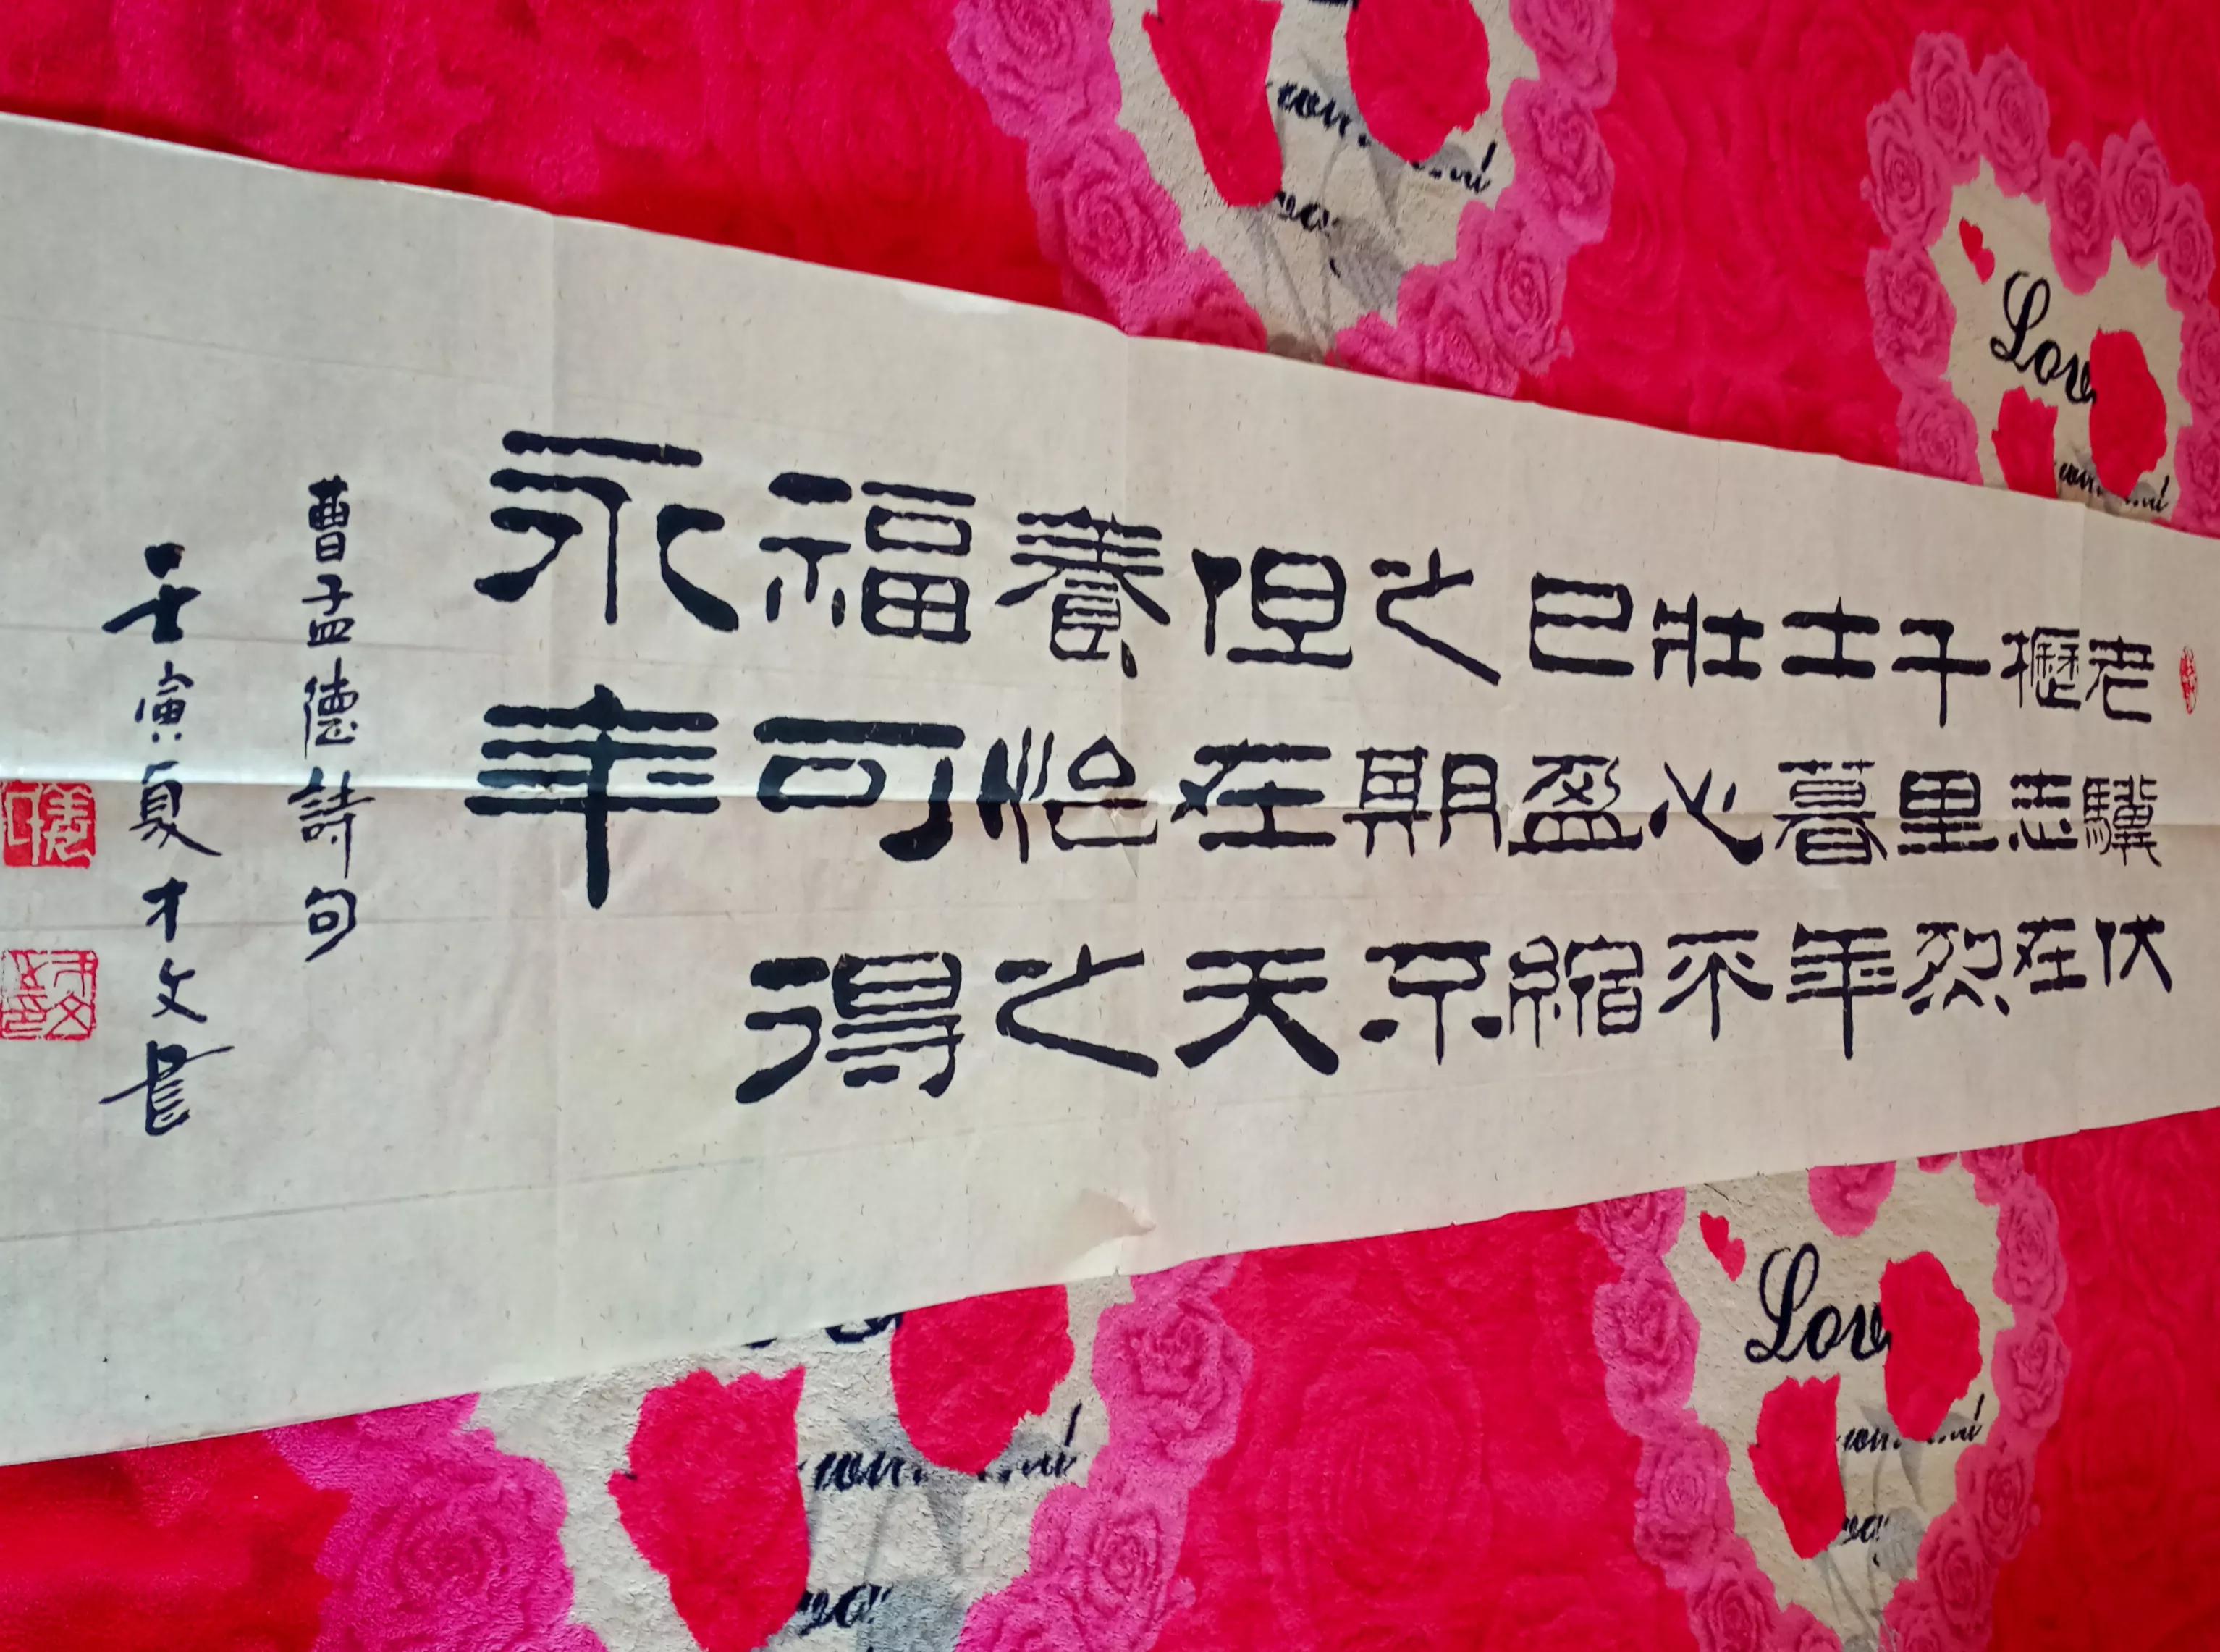 老驥伏
櫪志在
千里烈
士暮年
壯心不
已盈縮
之期不
但在天
養怡之
福可得
永年
曹孟德詩句
壬寅夏才文書
Lov
Lov